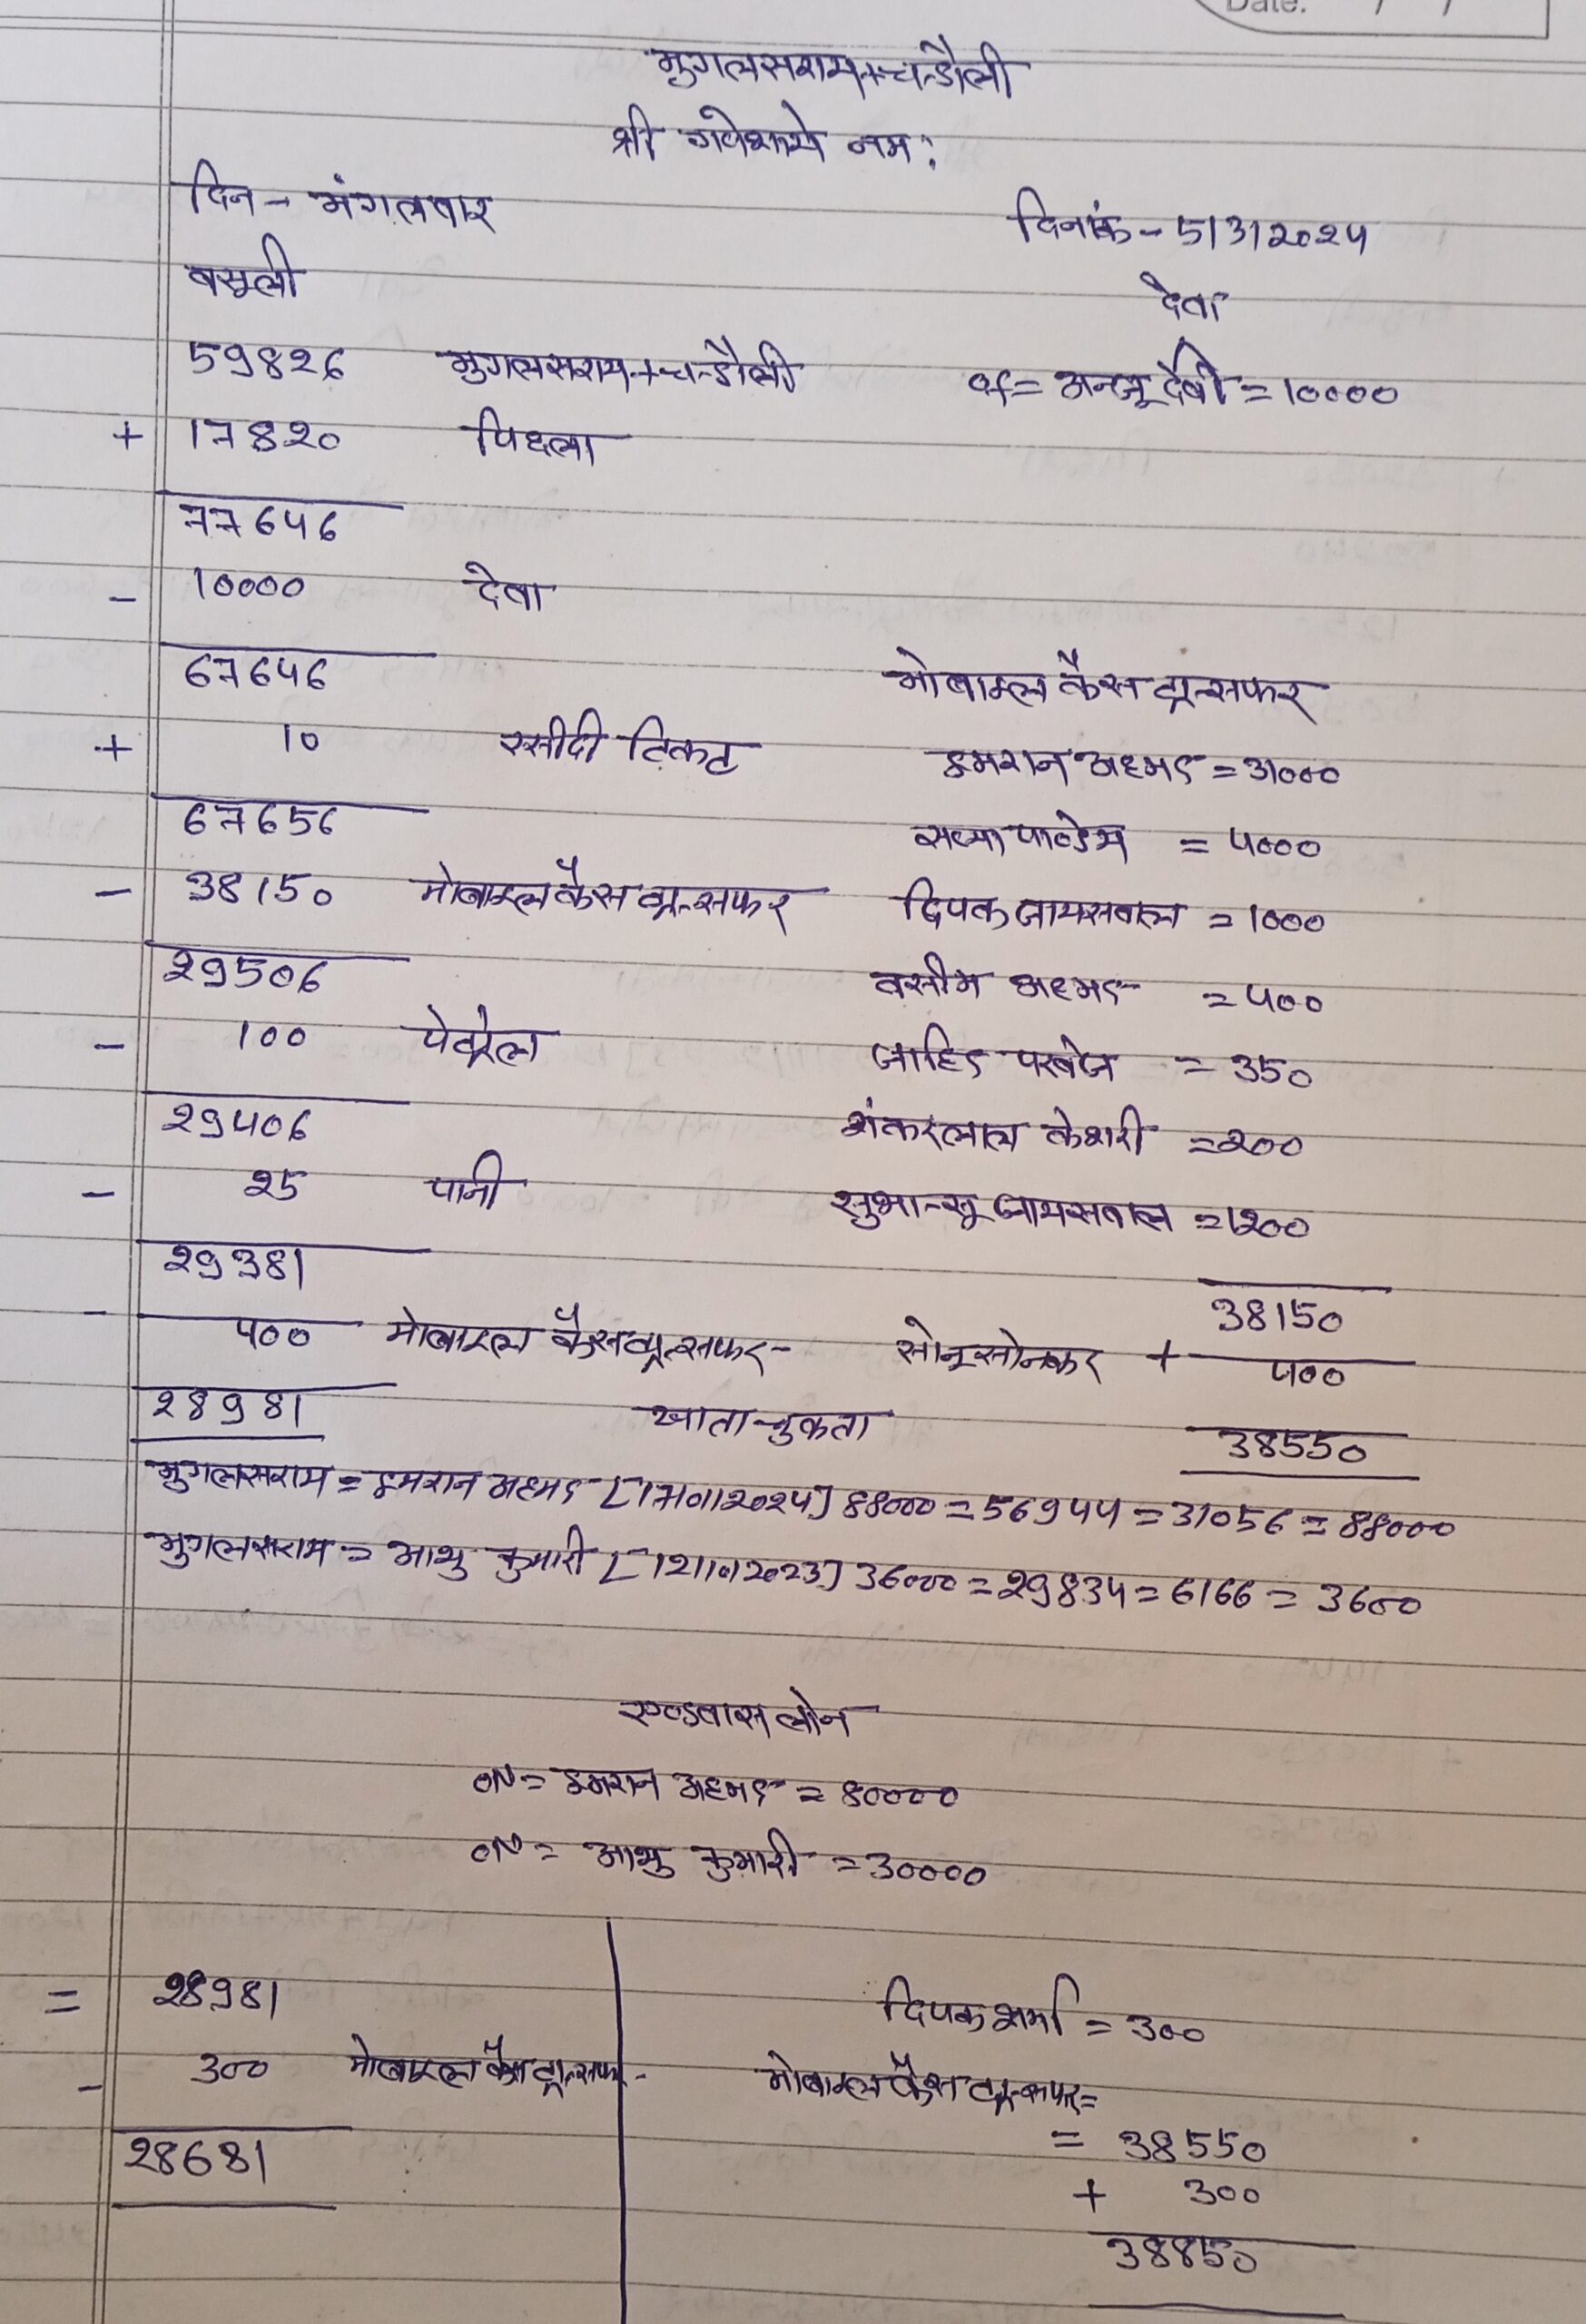 Date: / /
मुगलसराय+चन्डौली
श्री गणेशाये नमः
दिन - मंगलवार
दिनांक - 5/3/2024
वसूली
देवा
59826 मुगलसराय+चन्डौली
of = अन्जू देवी = 10000
+ 17820 पिछला
77646
- 10000 देवा
67646
मोबाइल कैस ट्रान्सफर
+ 10 रसीदी टिकट
इमरान अहमद = 31000
67656
सत्या पाण्डेय = 5000
- 38150 मोबाइल कैस ट्रान्सफर
दिपक जायसवाल = 1000
29506
वसीम अहमद = 400
- 100 पेट्रोल
जाहिद परवेज = 350
29406
शंकरलाल केशरी = 200
- 25 पानी
सुभान्सू जायसवाल = 1200
29381
38150
- 400 मोबाइल कैस ट्रान्सफर -
सोनू सोनकर + 400
28981
खाता चुकता
38550
मुगलसराय = इमरान अहमद [17/01/2024] 88000 = 56944 = 31056 = 88000
मुगलसराय = आशु कुमारी [12/10/2023] 36000 = 29834 = 6166 = 3600
एण्डवास लोन
ON = इमरान अहमद = 80000
ON = आशु कुमारी = 30000
= 28981
दिपक शर्मा = 300
- 300 मोबाइल कैस ट्रान्सफर -
मोबाइल कैस ट्रान्सफर =
28681
= 38550
+ 300
38850